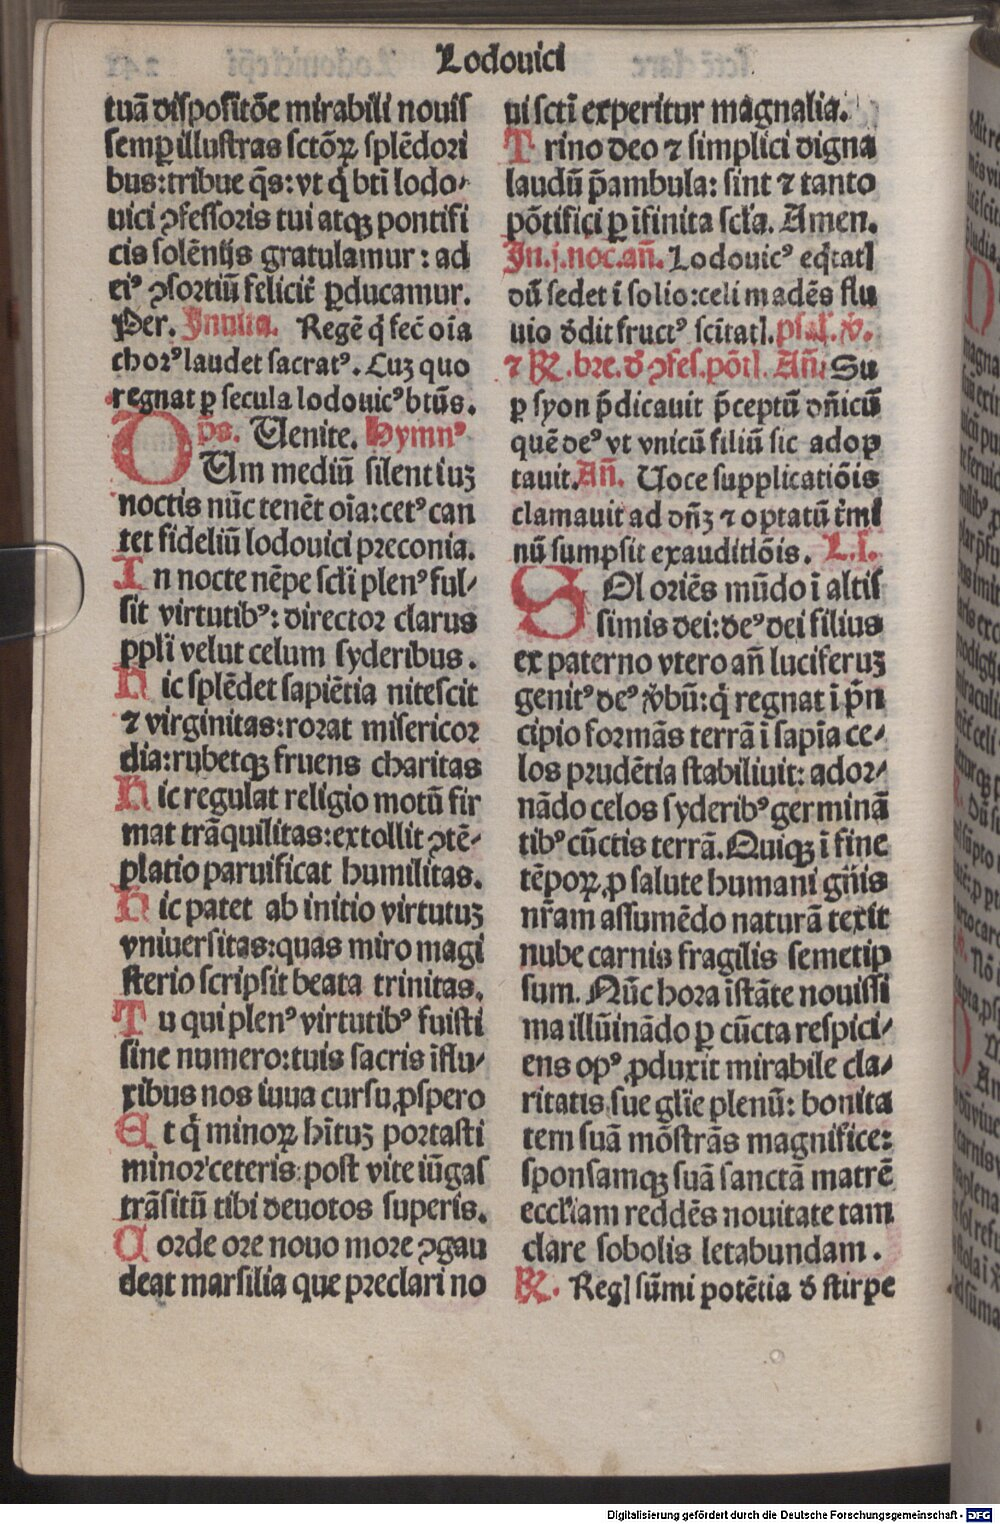 Lodouici
tuā dispositōe mirabili nouis
semꝑ illustras sctōꝝ splēdori
bus: tribue q̄s: vt q̇ bti̅ lodo⸗
uici ꝯfessoris tui atqꝫ pontifi
cis solēnijs gratulamur: ad
eiꝰ ꝯsortiū felicit̄ ꝑducamur.
Per. Inuita. Regē q̇ fec̄ oi̅a
chorꝰ laudet sacratꝰ. Cuꝫ quo
regnat ꝑ secula lodouicꝰ btūs.
p̄s. Uenite. Hymnꝰ
CUm mediū silentiuꝫ
noctis nūc tenēt oi̅a: cetꝰ can
tet fideliū lodouici preconia.
In nocte nēpe scl̄i plenꝰ ful⸗
sit virtutibꝰ: director clarus
ppl̄i velut celum syderibus.
Hic splēdet sapiētia nitescit
⁊ virginitas: rorat misericor
dia: rubetqꝫ fruens charitas
Hic regulat religio motū fir
mat trāquilitas: extollit ꝯtē⸗
platio paruificat humilitas.
Hic patet ab initio virtutuꝫ
vniuersitas: quas miro magi
sterio scripsit beata trinitas.
Tu qui plenꝰ virtutibꝰ fuisti
sine numero: tuis sacris īflu⸗
xibus nos iuua cursu ꝓspero
Et q̇ minoꝝ hi̅tuꝫ portasti
minor ceteris: post vite iūgas
trāsitū tibi deuotos superis.
Corde ore nouo more ꝯgau
deat marsilia que preclari no
ui scti̅ experitur magnalia.
Trino deo ⁊ simplici digna
laudū p̄ambula: sint ⁊ tanto
pōtifici ꝑ īfinita scl̄a. Amen.
In .j. noc. an̄. Lodouicꝰ eq̇tatꝭ
dū sedet ī solio: celi madēs flu
uio ddit fructꝰ sci̅tatꝭ. psal. v̄.
⁊ ℟. bre. d̄ ꝯfes. pōtꝭ. An̄. Su
ꝑ syon p̄dicauit p̄ceptū dn̄icū
quē deꝰ vt vnicū filiū sic adop
tauit. An̄. Uoce supplicatiōis
clamauit ad dn̄ꝫ ⁊ optatū t̄mi
nū sumpsit exauditiōis. L. I.
SOl oriēs mūdo ī altis
simis dei: deꝰ dei filius
ex paterno vtero an̄ luciferuꝫ
genitꝰ deꝰ v̄bū: q̇ regnat ī p̄n
cipio formās terrā ī sapi̅a ce⸗
los prudētia stabiliuit: ador⸗
nādo celos syderibꝰ germinā
tibꝰ cūctis terrā. Quiqꝫ ī fine
tēpoꝝ, ꝓ salute humani gn̄is
nr̄am assumēdo naturā texit
nube carnis fragilis semetip
sum. Nūc hora īstāte nouissi
ma illūinādo ꝑ cūcta respici⸗
ens opꝰ ꝓduxit mirabile cla⸗
ritatis sue gl̄ie plenū: bonita
tem suā mōstrās magnifice:
sponsamqꝫ suā sanctā matrē
eccl̄iam reddēs nouitate tam
clare sobolis letabundam.
℟. Regꝭ sūmi potētia d̄ stirpe
Digitalisierung gefördert durch die Deutsche Forschungsgemeinschaft - DFG